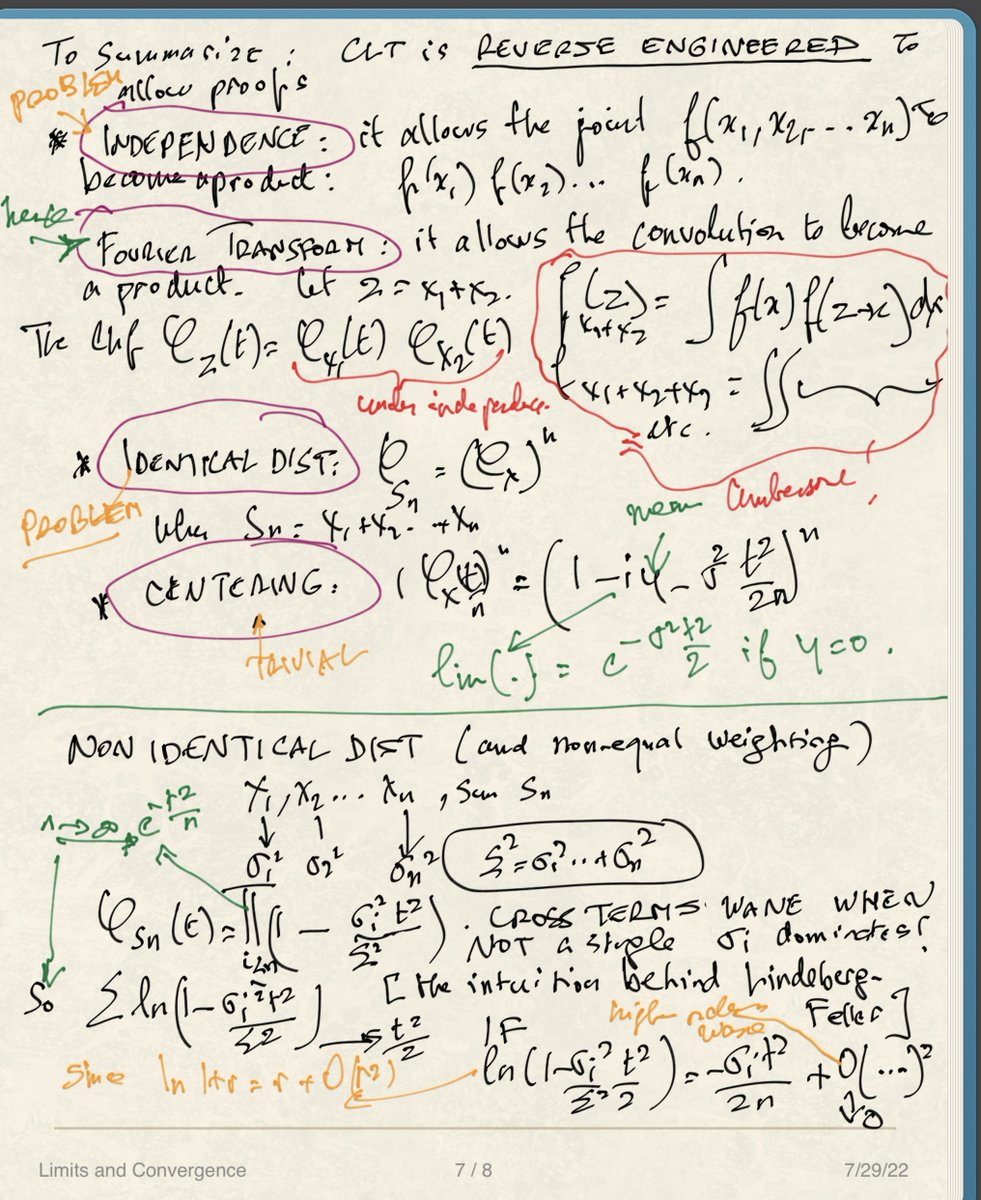 To Summarize : CLT is REVERSE ENGINEERED To
allow proofs
PROBLEM
* INDEPENDENCE : it allows the joint f(x₁, x₂, ... xₙ) To
become a product : f(x₁) f(x₂) ... f(xₙ).
hence
FOURIER TRANSFORM : it allows the convolution to become
a product. Let z = x₁ + x₂.
f_{x₁+x₂}(z) = ∫ f(x) f(z-x) dx
The Chf φ_z(t) = φ_{x₁}(t) φ_{x₂}(t)
under independence.
f_{x₁+x₂+x₃} = ∫∫
etc.
Cumbersome!
* IDENTICAL DIST : φ_{Sₙ} = (φ_x)ⁿ
PROBLEM
when Sₙ = x₁ + x₂ .. + xₙ
mean
* CENTERING : (φ_x(t)/n)ⁿ = (1 - iμ - σ² t²/2n)ⁿ
TRIVIAL
lim(.) = e^{-σ²t²/2} if μ=0.
NON IDENTICAL DIST (and non-equal weighting)
X₁, X₂ ... Xₙ, Sum Sₙ
n→∞ e^{-t²/n}
σ₁² σ₂² σₙ²
Σ² = σ₁² .. + σₙ²
φ_{Sₙ}(t) = ∏_{i≤n} (1 - σᵢ² t²/Σ²). CROSS TERMS WANE WHEN
NOT a single σᵢ dominates!
So Σ ln(1 - σᵢ² t²/Σ²) → t²/2
[the intuition behind Lindeberg-
Feller]
IF
higher orders
wane
since ln 1+r = r + O(r²)
ln(1 - σᵢ²/Σ² t²/2) = -σᵢt²/2n + O(...)²
↓0
Limits and Convergence
7 / 8
7/29/22